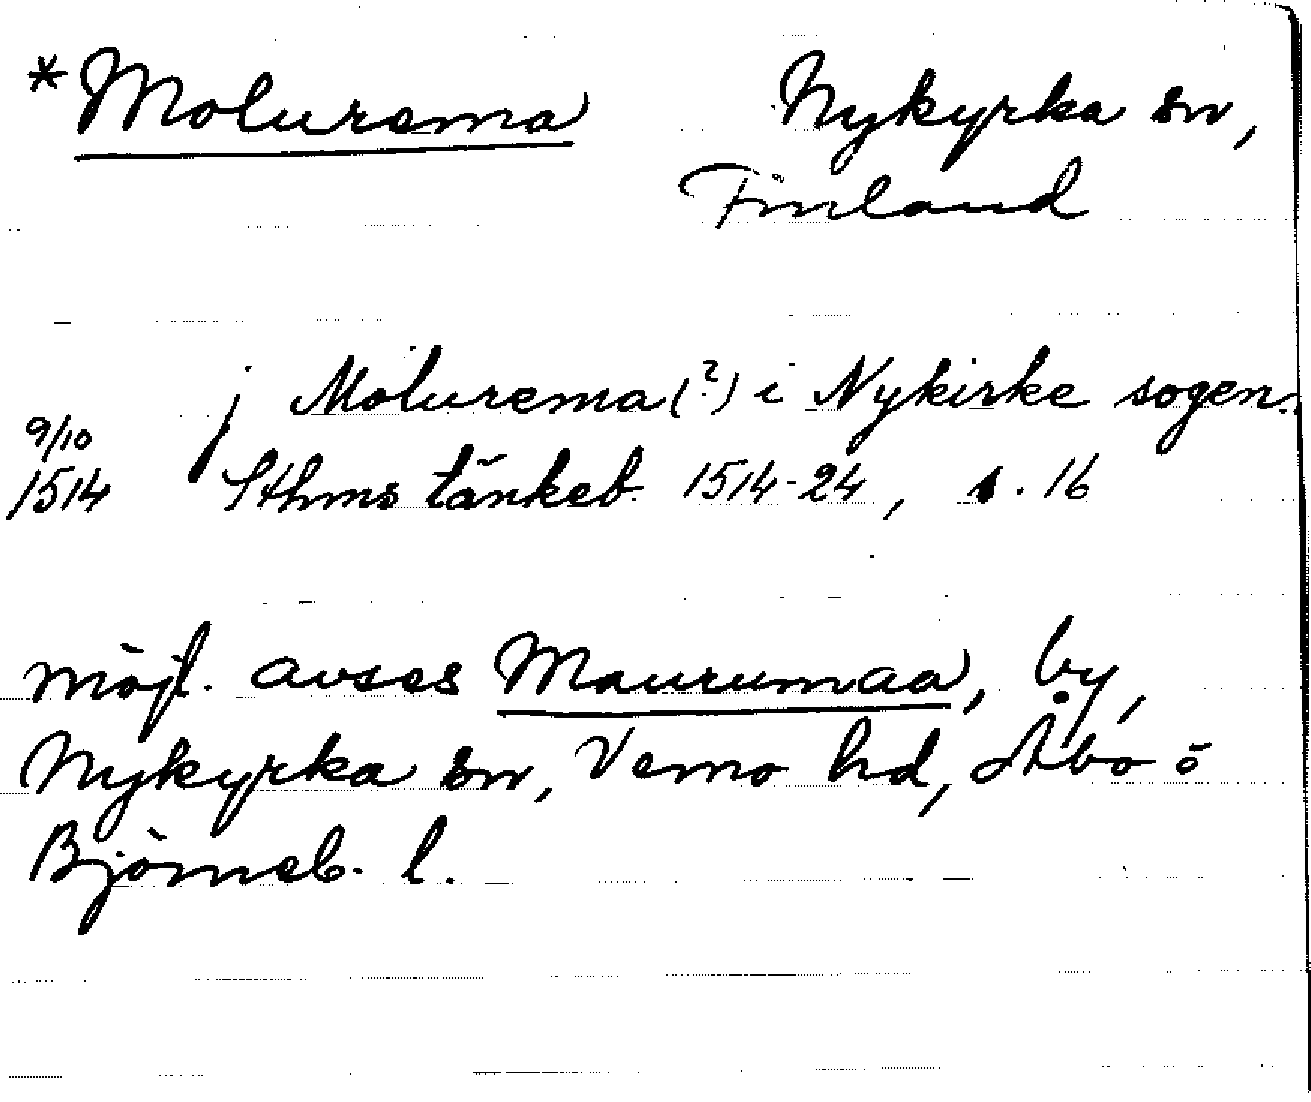 *Molurema Nykyrka sn,
Finland
j Molurema (?) i Nykirke sogen.
9/10
1514 Sthms tänkeb. 1514-24, s. 16
möjl. avses Maurumaa, by,
Nykyrka sn, Vemo hd, Åbo o
Björneb. l.